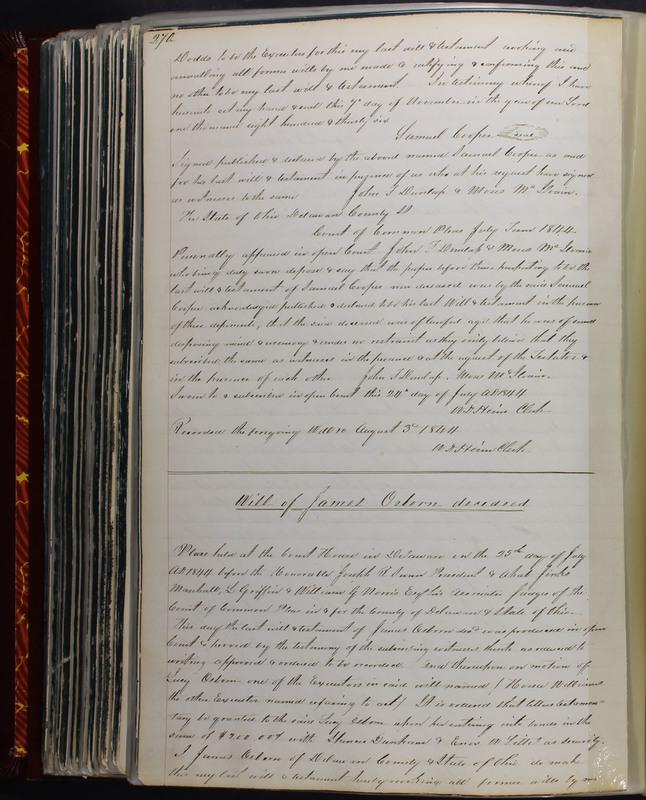 270
Dodds to be the Executors for this my last will & testament revoking and
annulling all former wills by me made & ratifying & confirming this and
no other to be my last will & testament. In testimony whereof I have
hereunto set my hand & seal this 7th day of November in the year of our Lord
one thousand eight hundred & thirty six
Samuel Cooper seal
Signed published & declared by the above named Samuel Cooper as and
for his last will & testament in presence of us who at his request have signed
as witnesses to the same John F Dunlap & Moses Mc Ilvain.
The State of Ohio Delaware County SS
Court of Common Pleas July Term 1844.
Personally appeared in open Court John F Dunlap & Moses Mc Ilvain
who being duly sworn depose & say that the paper before them purporting to be the
last will & testament of Samuel Cooper now deceased was by the said Samuel
Cooper acknowledged published & declared to be his last Will & testament in the presence
of these deponents, that the said deceased was of lawful age that he was of sound
disposing mind & memory & under no restraint as they verily believe that they
subscribed the same as witnesses in the presence & at the request of the Testator &
in the presence of each other John F Dunlap. Moses McIlvain.
Sworn to & subscribed in open Court this 24th day of July AD 1844
Clerk
Recorded the foregoing Will &c August 3d 1844
Clerk
Will of James Osborn deceased
Pleas held at the Court House in Delaware on the 25th day of July
AD 1844 before the Honorable Joseph R Swan President & Ahab Jinks
Marshall L Griffin & William G Norris Esqrs his Associates Judges of the
Court of Common Pleas in & for the County of Delaware & State of Ohio.
This day the last will & testament of James Osborn decd was produced in open
Court & proved by the testimony of the subscribing witnesses thereto as reduced to
writing approved & ordered to be recorded. And thereupon on motion of
Lucy Osborn one of the Executors in said will named (Hosea Williams
the other Executor named refusing to act) It is ordered that letters testamen=
tary be granted to the said Lucy Osborn upon her entering into bonds in the
sum of $200,00 with Dunham & Enos as security.
I James Osborn of Delaware County & State of Ohio do make
this my last will & testament hereby revoking all former wills by me